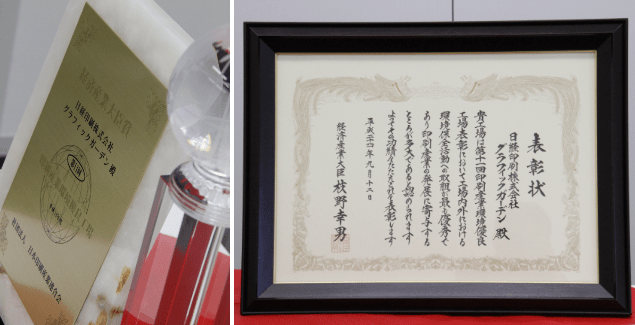 経済産業大臣賞
日経印刷株式会社
グラフィックガーデン 殿
社団法人 日本印刷産業連合会
表彰状
日経印刷株式会社
グラフィックガーデン 殿
貴工場は第十一回印刷産業環境優良
工場表彰において工場内外における
環境保全活動への取組が最も優秀で
あり印刷産業の発展に寄与する
ところが多大であると認められます
よってその功績をたたえこれを表彰します
平成二十四年九月十二日
経済産業大臣 枝野幸男